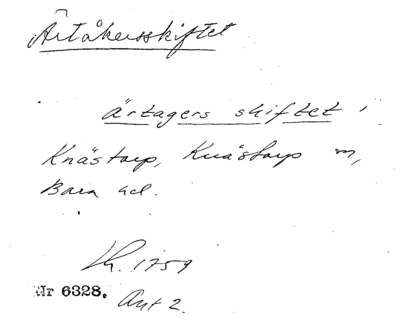 Ärtåkersskiftet
ärtagers skiftet,
Knästorp, Knästorp sn,
Bara hd.
Lh. 1759
Nr 6328. Akt 2.